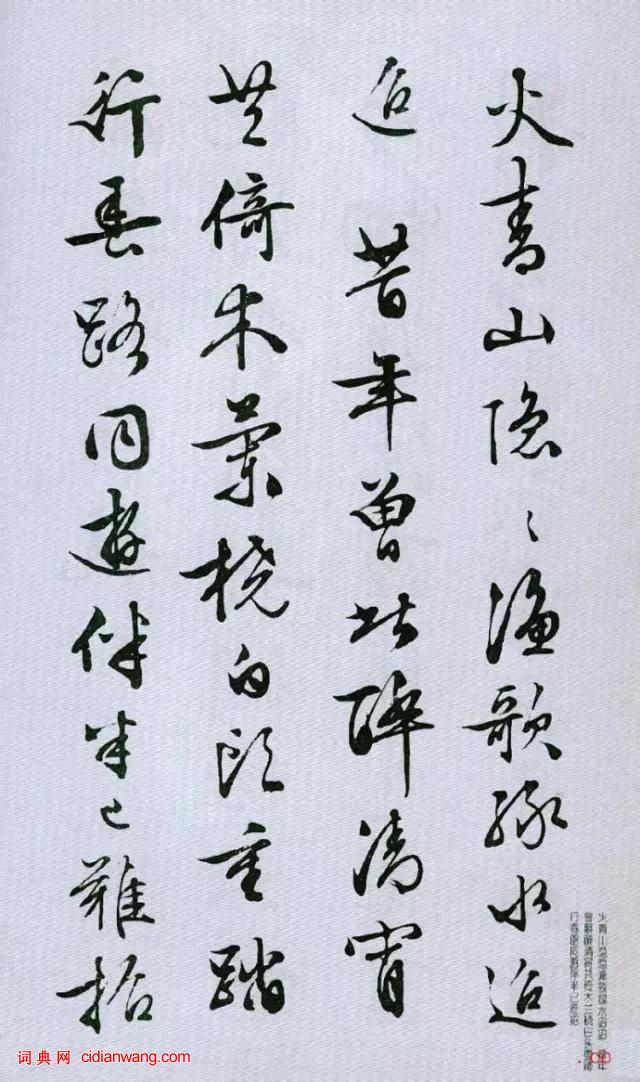 火青山隐隐渔歌绿水迢
迢 昔年曾此醉清宵
共倚木蘭桡白头重踏
行春路同遊伴半已難招
火青山隐隐渔歌绿水迢迢 昔年
曾此醉清宵共倚木兰桡白头重踏
行春路同游伴半已难招
词典网 cidianwang.com